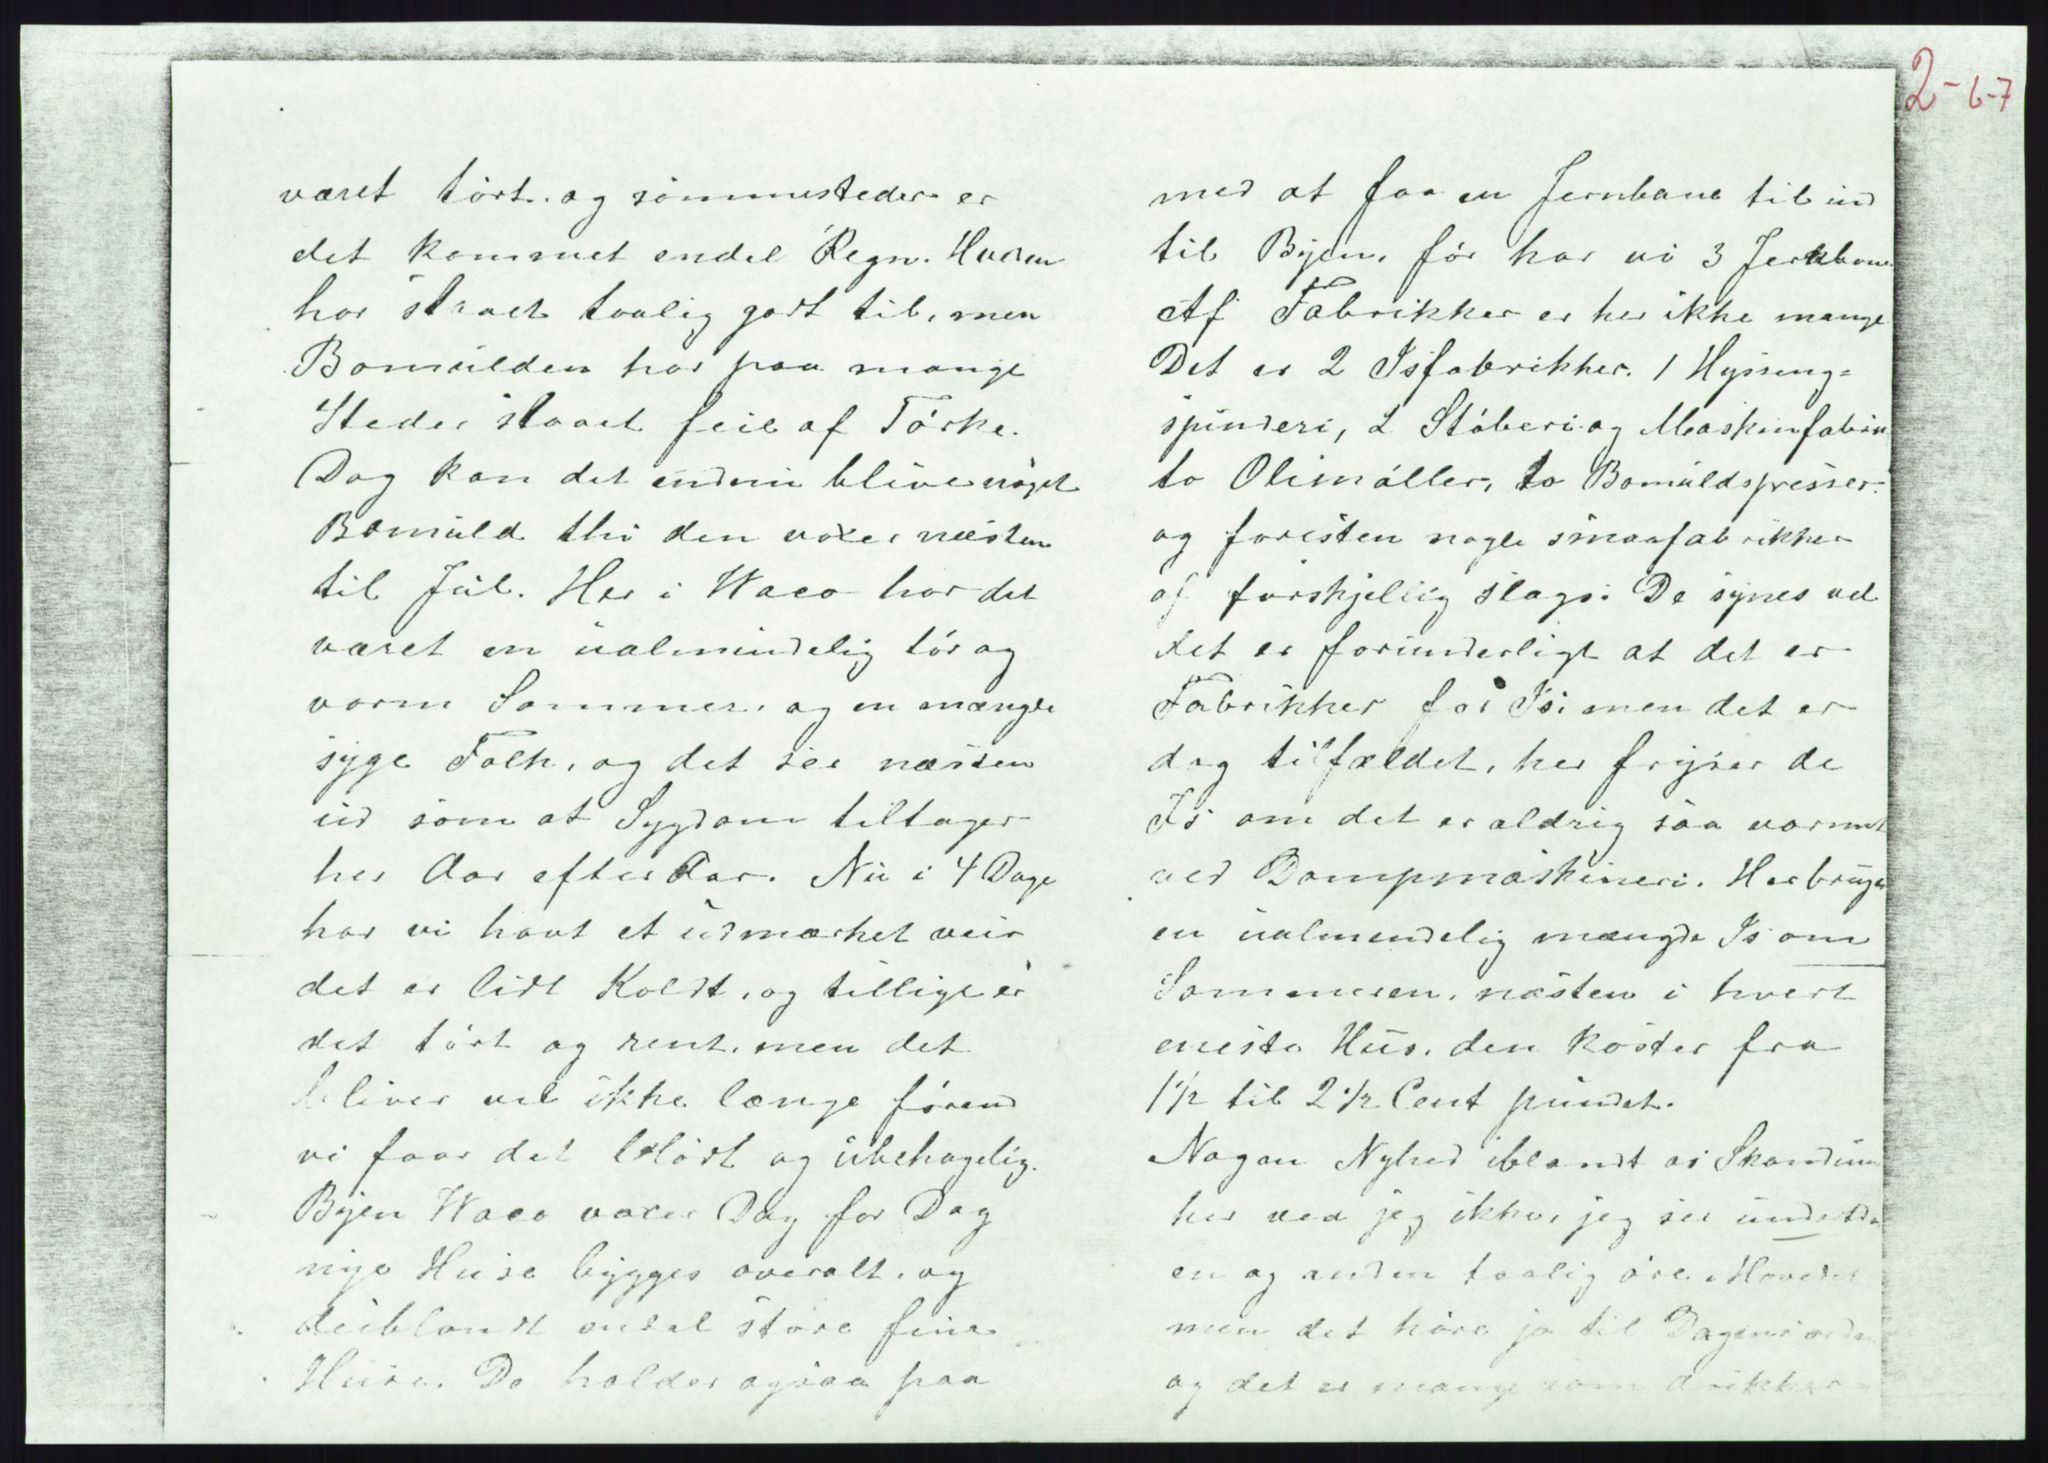 2-6-7
været tørt. og sommesteder er
det kommet endel Regn. Hveden
har slaaet taalig godt til, men
Bomulden har paa mange
Steder slaaet feil af Tørke.
Dog kan det endnu blive noget
Bomuld thi den voxer næsten
til Jul. Her i Waco har det
været en ualmindelig tør og
varm Sommer. og en mængde
syge Folk, og det ser næsten
ud som at Sygdom tiltager
her Aar efter Aar. Nu i 4 Dage
har vi havt et udmærket veir
det er lidt Koldt, og tillige er
det tørt og rent. men det
bliver vel ikke længe førend
vi faar det blødt og ubehagelig.
Byen Waco voxer Dag for Dag
nye Huse bygges overalt. og
deiblandt endel store fine
Huse. De holder ogsaa paa
med at faa en Jernbane til ind
til Byen, før har vi 3 Jernbane
Af Fabrikker er her ikke mange
Det er 2 Isfabrikker. 1 Hyssing-
spinderi, 2 Støberi og Maskinfabrik
to Oliemøller, to Bomuldspresser.
og foresten nogle smaafabrikker
af forskjellig slags. De synes vel
det er forunderligt at det er
Fabrikker for Is. men det er
dog tilfældet, her fryser de
Is om det er aldrig saa varmt
ved Dampmaskineri. Her bruges
en ualmendelig mængde Is om
Sommeren, næsten i hvert
eneste Hus. den koster fra
1 1/2 til 2 1/2 Cent pundet.
Nogen Nyhed iblandt os
her ved jeg ikke, jeg ser
en og anden taalig øre i Hovedet
men det høre jo til Dagens orden
og det er mange som drikker